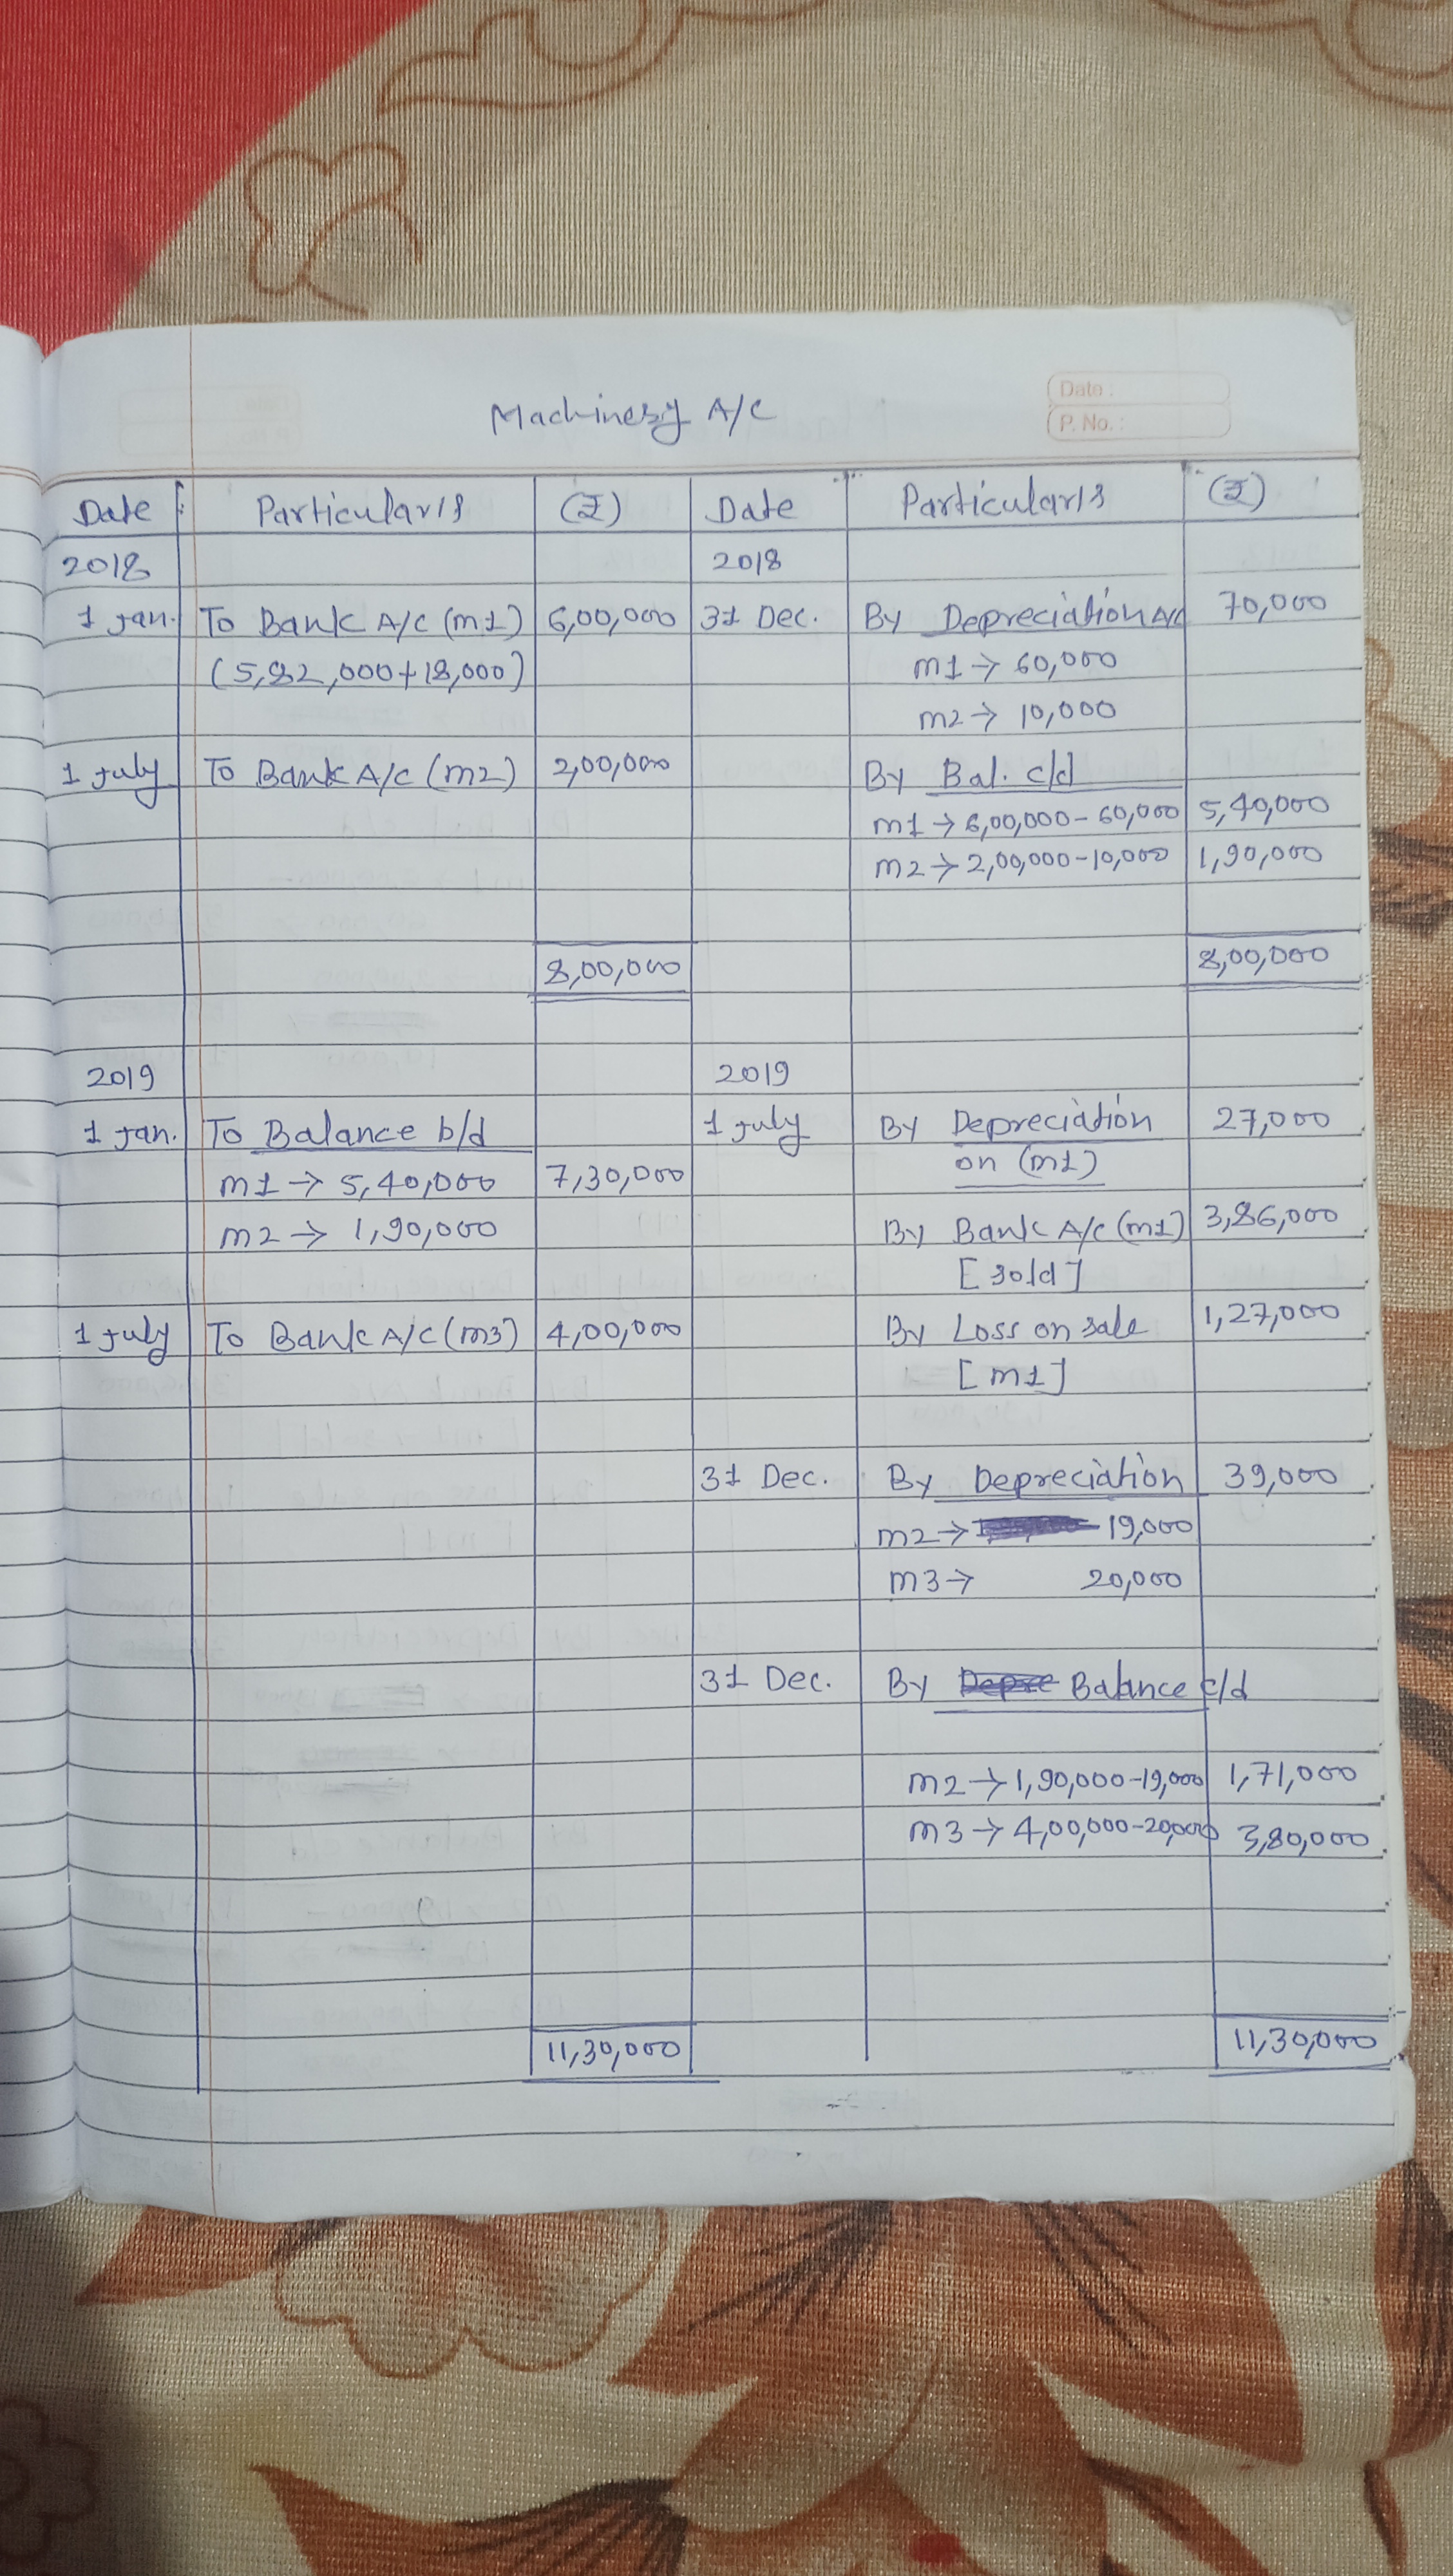 Date :
P. No. :
Machinery A/C
Date Particulars (₹) Date Particulars (₹)
2018 2018
1 Jan. To Bank A/C (m1) 6,00,000 31 Dec. By Depreciation A/c 70,000
(5,82,000+18,000) m1 → 60,000
m2 → 10,000
1 July To Bank A/C (m2) 2,00,000 By Bal. c/d
m1 → 6,00,000-60,000 5,40,000
m2 → 2,00,000-10,000 1,90,000
8,00,000 8,00,000
2019 2019
1 Jan. To Balance b/d 1 July By Depreciation 27,000
on (m1)
m1 → 5,40,000 7,30,000
m2 → 1,90,000 By Bank A/C (m1) 3,86,000
[sold]
1 July To Bank A/C (m3) 4,00,000 By Loss on sale 1,27,000
[m1]
31 Dec. By Depreciation 39,000
m2 → 19,000
m3 → 20,000
31 Dec. By Depre Balance c/d
m2 → 1,90,000-19,000 1,71,000
m3 → 4,00,000-20,000 3,80,000
11,30,000 11,30,000